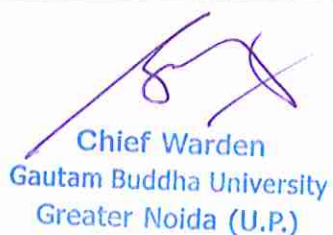 Chief Warden
Gautam Buddha University
Greater Noida (U.P.)